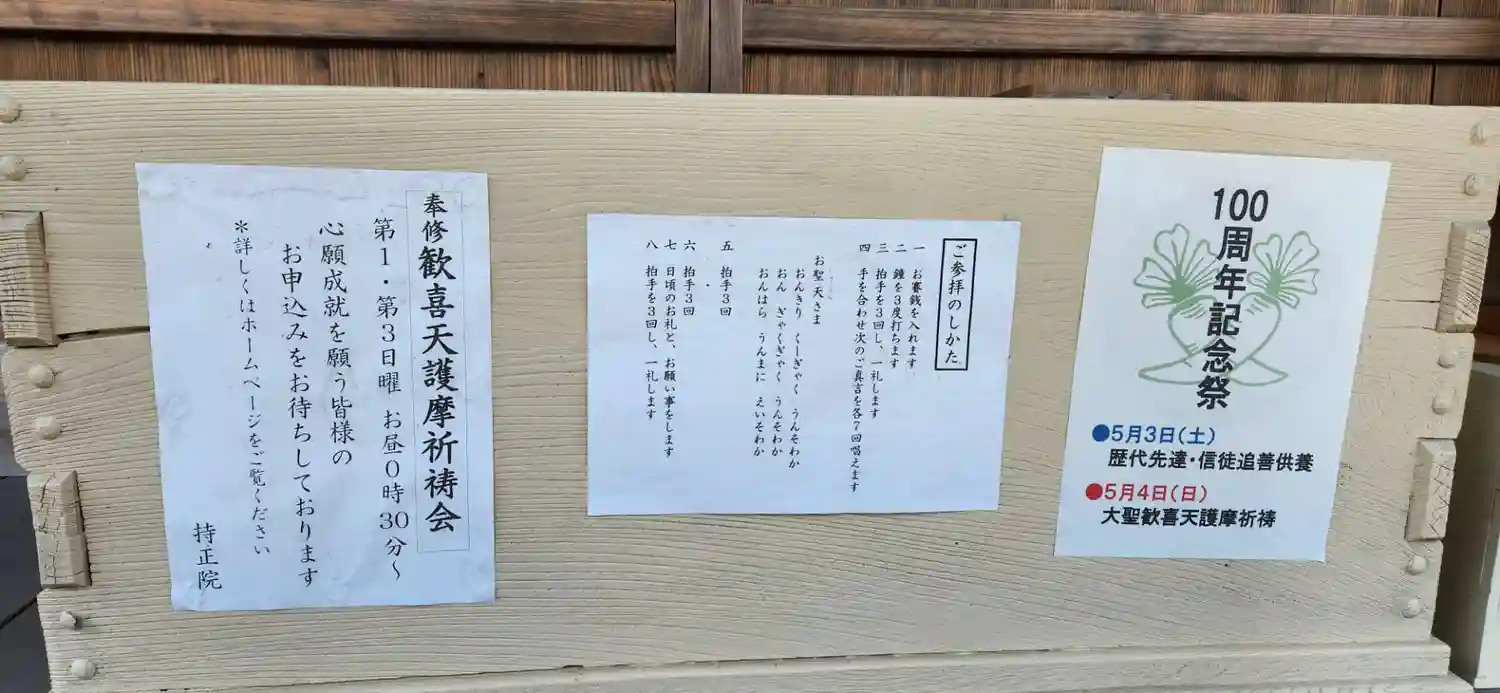 奉修歓喜天護摩祈祷会
第1・第3日曜 お昼0時30分～
心願成就を願う皆様の
お申込みをお待ちしております
＊詳しくはホームページをご覧ください
持正院
ご参拝のしかた
一 お賽銭を入れます
二 鐘を3度打ちます
三 拍手を3回し、一礼します
四 手を合わせ次のご真言を各7回唱えます
お聖天さま
おんきり くーぎゃく うんそわか
おん ぎゃくぎゃく うんそわか
おんはら うんまに えいそわか
五 拍手3回
六 拍手3回
七 日頃のお礼と、お願い事をします
八 拍手を3回し、一礼します
100周年記念祭
●5月3日(土)
歴代先達・信徒追善供養
●5月4日(日)
大聖歓喜天護摩祈祷